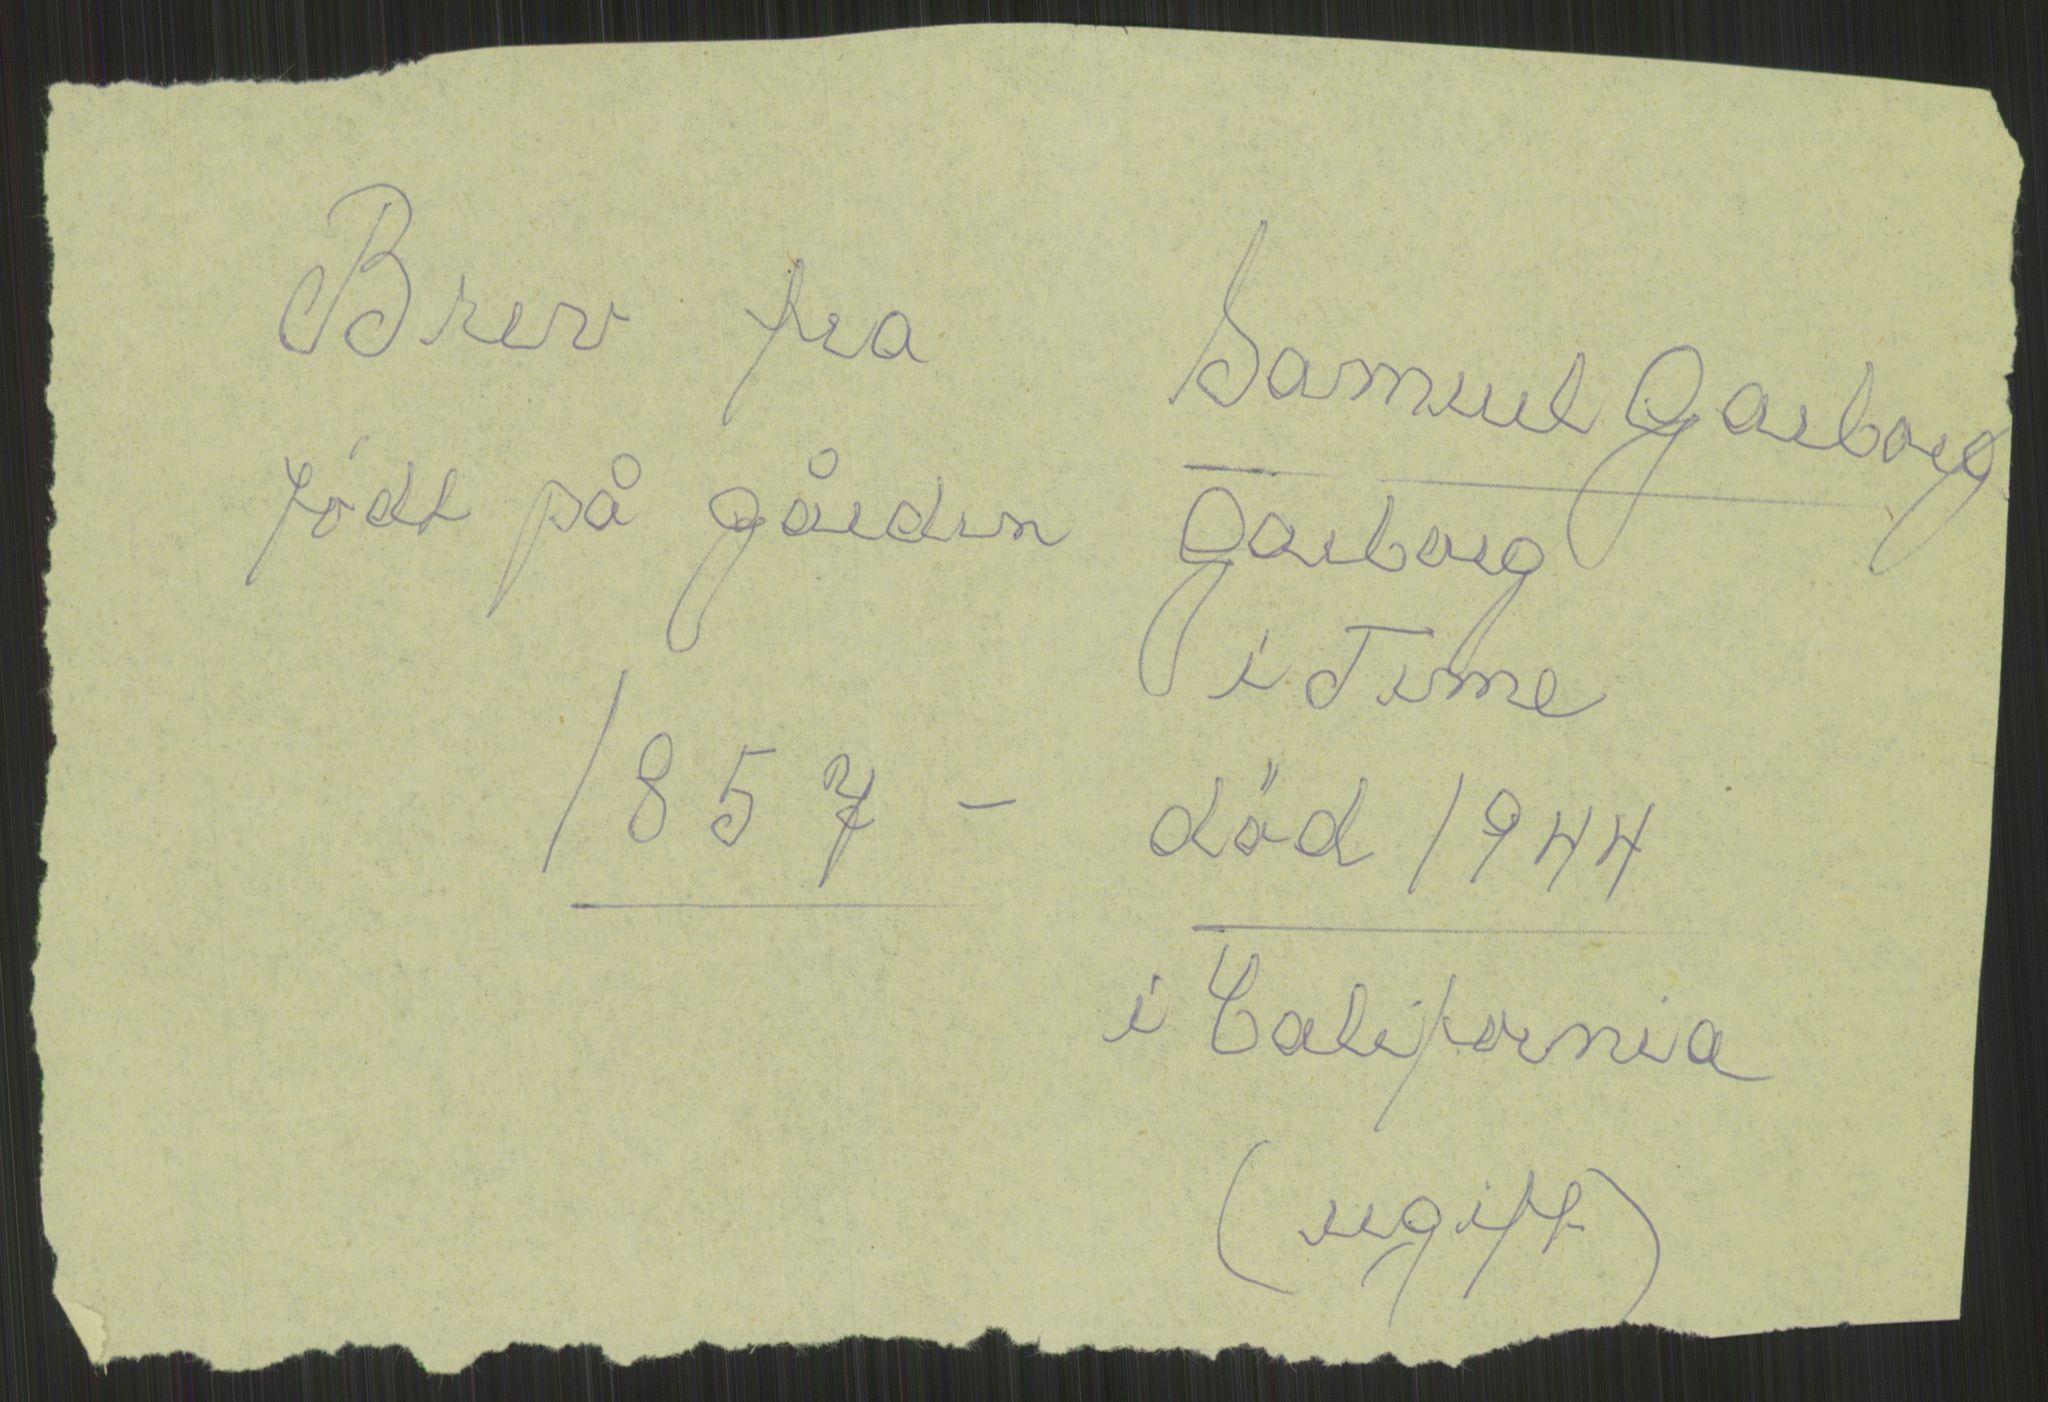 Brev fra Samuel Garborg
född på gården Garborg
i Time
1857 - död 1944
i California
(ugift)